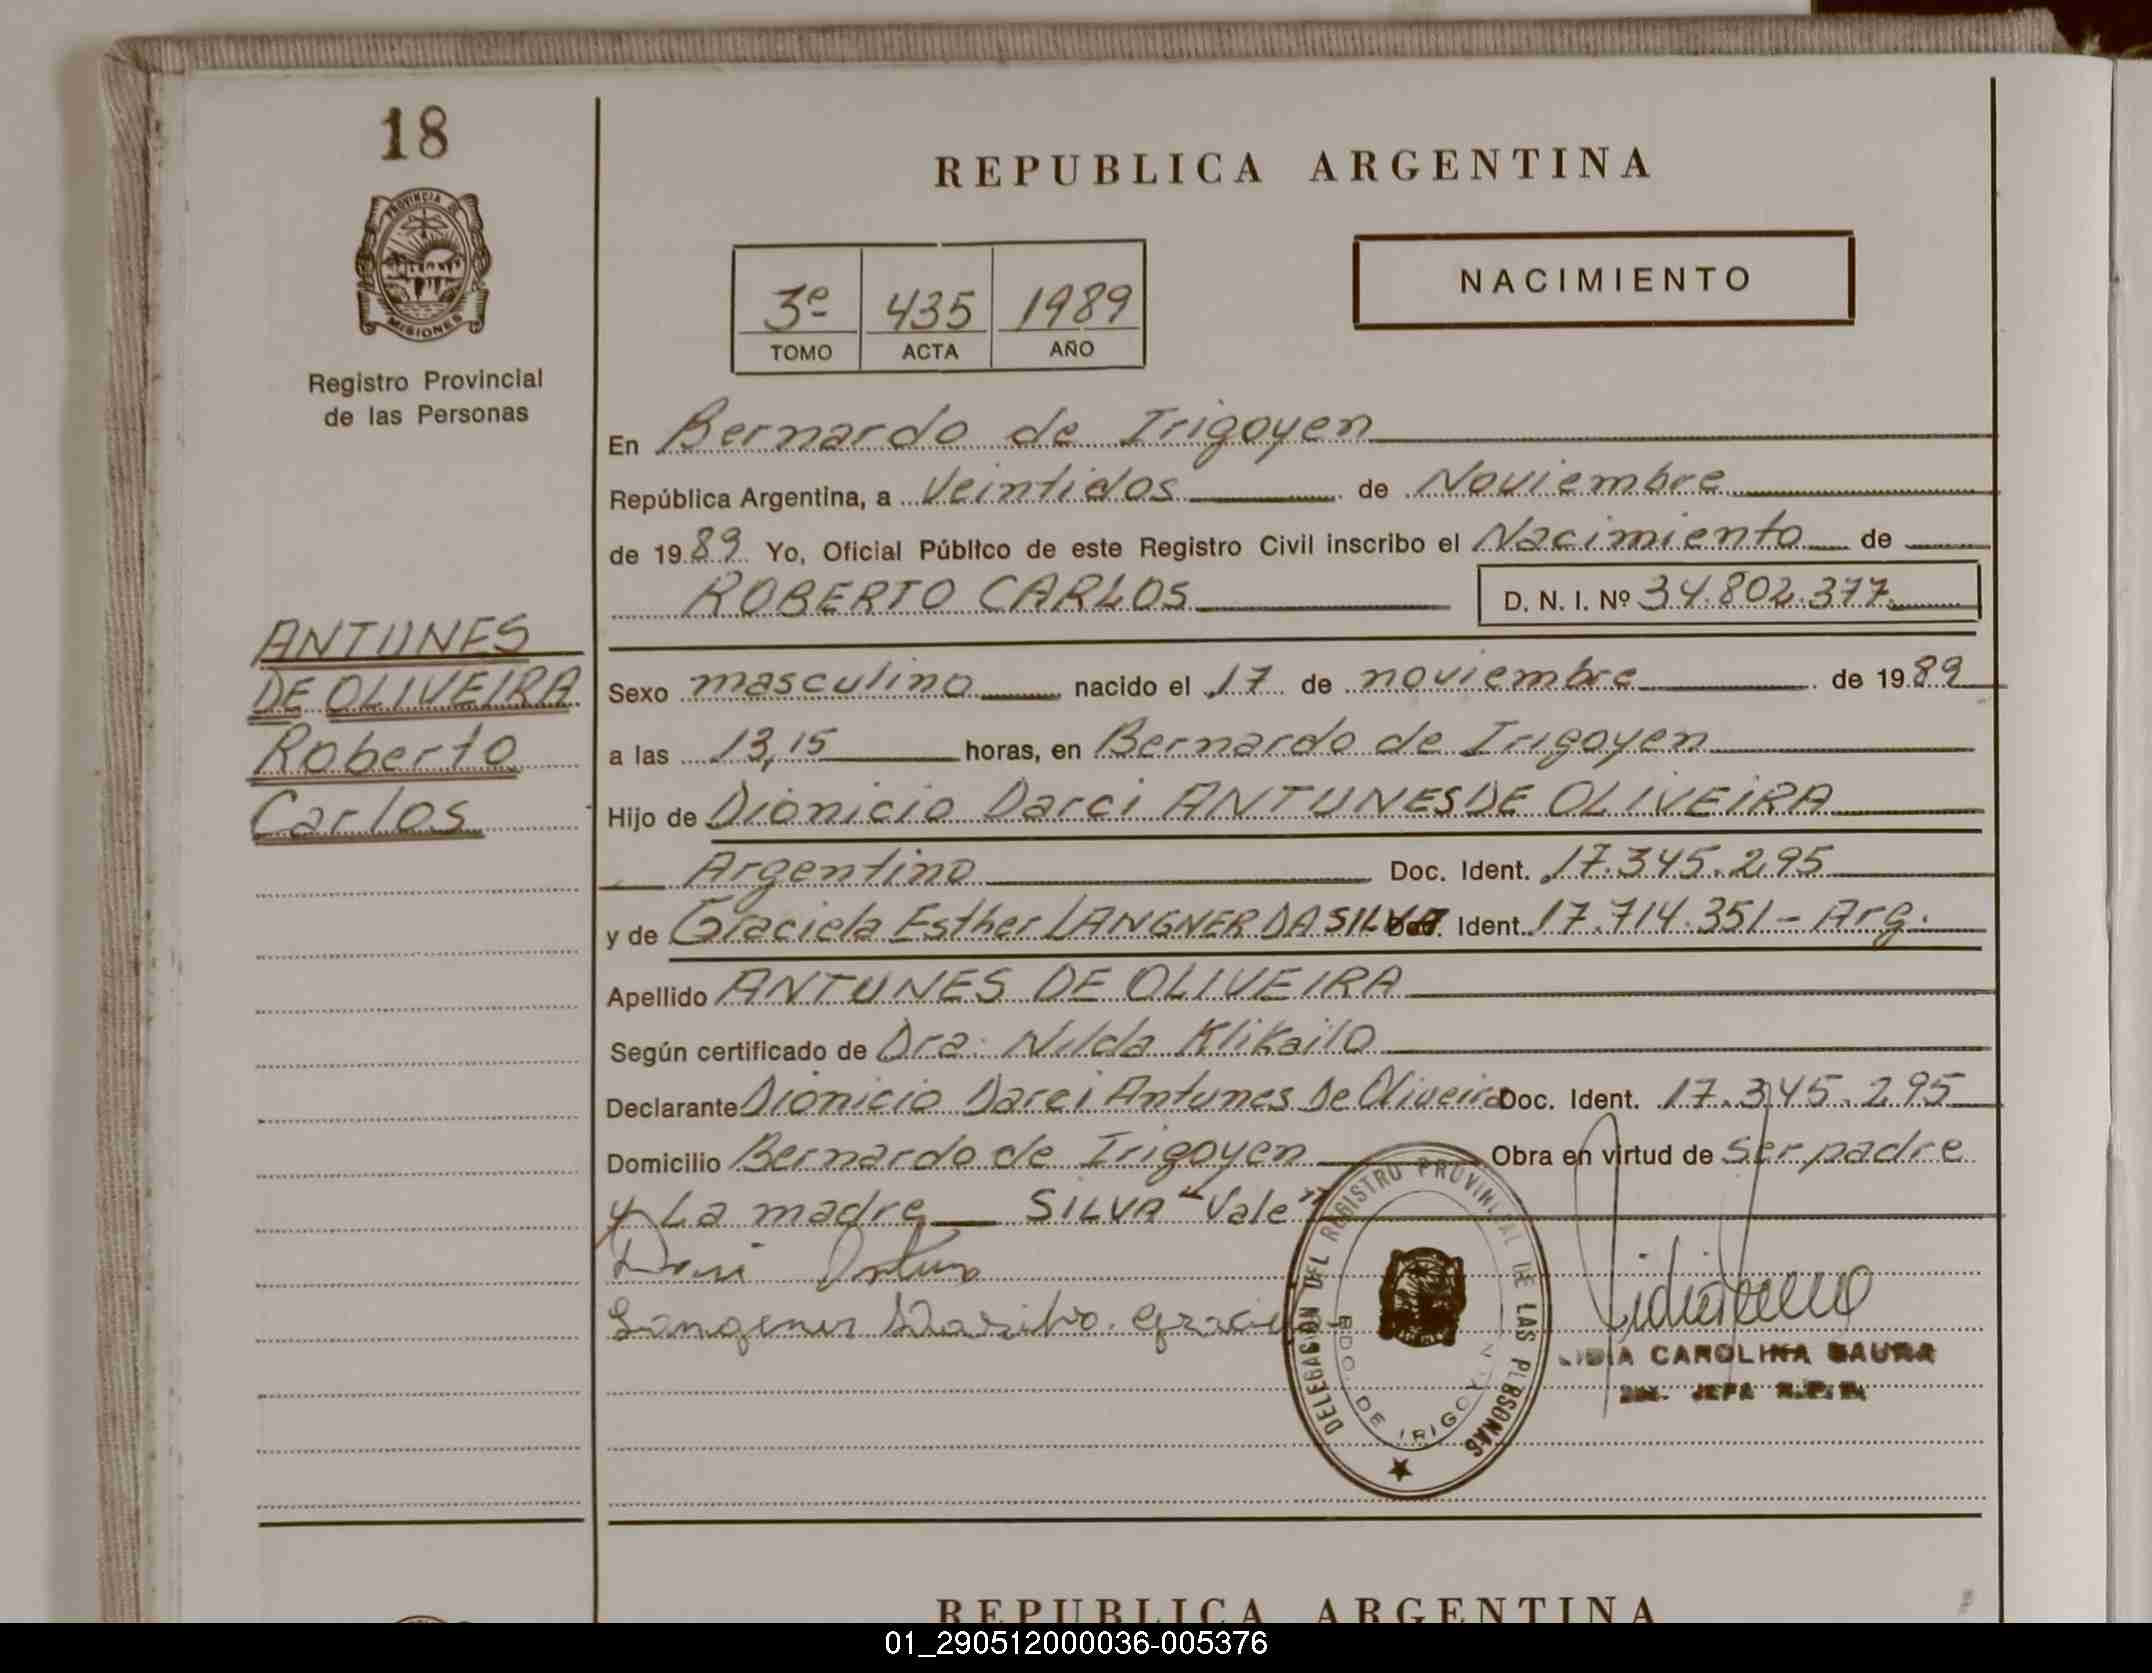 18
PROVINCIA DE
MISIONES
Registro Provincial
de las Personas
ANTUNES
DE OLIVEIRA
Roberto
Carlos
REPUBLICA ARGENTINA
3º 435 1989
TOMO ACTA AÑO
NACIMIENTO
En Bernardo de Irigoyen
República Argentina, a Veintidos de Noviembre
de 1989 Yo, Oficial Público de este Registro Civil inscribo el Nacimiento de
ROBERTO CARLOS D. N. I. Nº 34.802.377
Sexo masculino nacido el 17 de noviembre de 1989
a las 13,15 horas, en Bernardo de Irigoyen
Hijo de Dionicio Darci ANTUNES DE OLIVEIRA
Argentino Doc. Ident. 17.345.295
y de Graciela Esther LANGNER DA SILVA Doc. Ident. 17.714.351 - Arg.
Apellido ANTUNES DE OLIVEIRA
Según certificado de Dra. Nilda Klikailo
Declarante Dionicio Darci Antunes De Oliveira Doc. Ident. 17.345.295
Domicilio Bernardo de Irigoyen Obra en virtud de ser padre
y La madre SILVA "Vale"
DELEGASION DEL REGISTRO PROVINCIAL DE LAS PERSONAS
BDO. DE IRIGOYEN
LIDIA CAROLINA
JEFA R.P.P.
REPUBLICA ARGENTINA
01_290512000036-005376